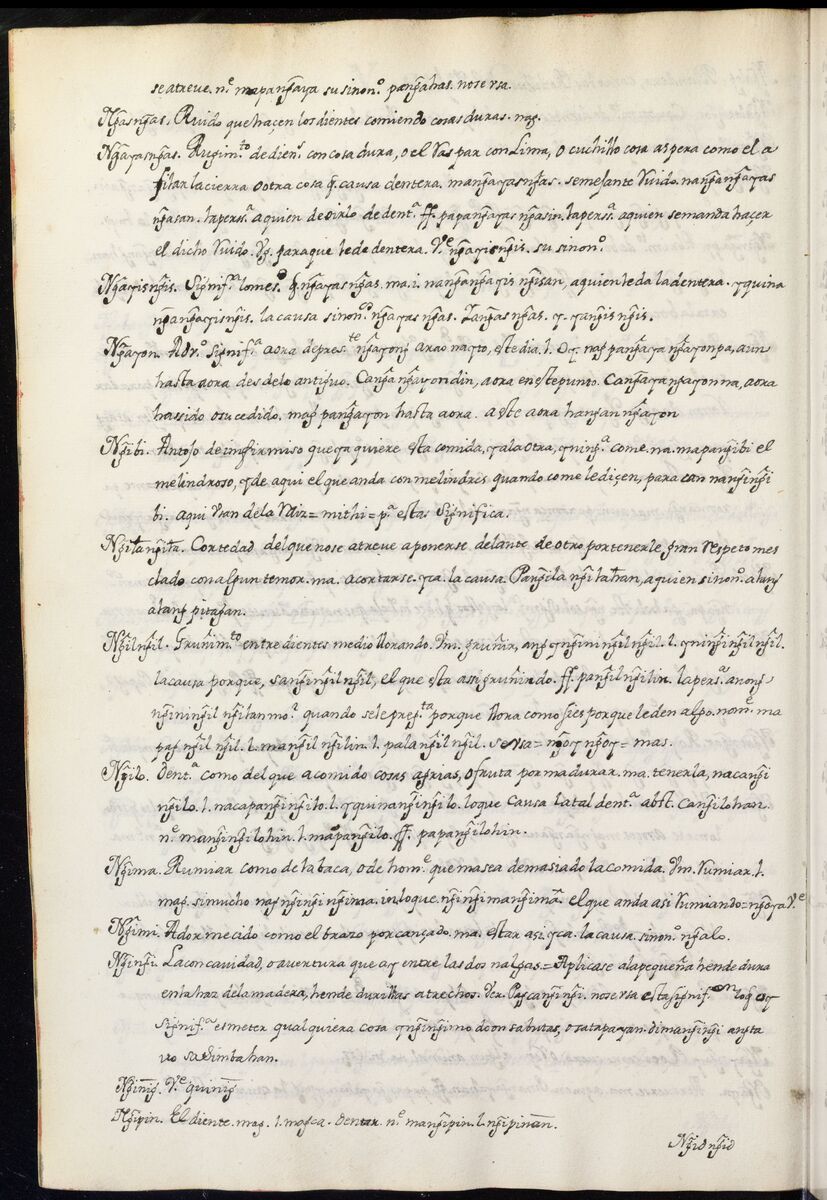 se atreve. n.e mapang̃aya su sinon.o pang̃ahas. nose vsa.
Ng̃asng̃as. Ruido que haçen los dientes comiendo cosas duras. mag.
Ng̃ayasng̃as. Rugim.to de dien.s con cosa dura, o el Raspar con Lima, o cuchillo cosa aspera como el a
filar la cierra o otra cosa q̃. causa dentera. mang̃ayasng̃as. semejante Ruido. nang̃ang̃ayas
ng̃asan. la perss.a aquien de oirlo le dedent.a ff. papang̃ayas ng̃asin. la perss.a aquien se manda haçer
el dicho Ruido. Vg. para que le de dentera. V.e ng̃ayisng̃is. su sinon.o
Ng̃ayisng̃is. Signif.a lo mes.o q̃. ng̃ayasng̃as. ma. i. nang̃ang̃ayis ng̃isan, aquien le da la dentera. yquina
ng̃ang̃ayisng̃is. la causa sinon.o ng̃ayasng̃as. Zang̃asng̃as. y. yang̃isng̃is.
Ng̃ayon. Adv.o signif.a aora depres.te ng̃ayong arao na yto, este dia. l. Oy. mag pang̃aya ng̃ayonpa, aun
hasta aora des delo antiguo. Cang̃a ng̃ayondin, aora en este punto. Cang̃ayang̃ayonna, aora
ha ssido o sucedido. mag pang̃ayon hasta aora. a este aora hangan ng̃ayon
Ng̃ibi. Antojo de imfirmiso que ya quiere esta comida, ya la otra, yning.a come. na. mapang̃ibi el
melindroso, y de aqui el que anda con melindres quando come le diçen, para can nang̃ing̃i
bi. aqui Vsan de la Raiz = mithi = p.a estas Significa.
Ng̃itang̃ita. Cortedad del que nose atreve aponerse delante de otro por tenerle gran respeto mes
clado con algun temor. ma. acortarse. yca. la causa. aquien sinon.o alang
alang pitagan.
Ng̃ilng̃il. Gruñim.to entre dientes medio llorando. Vm. gruñir, ang yng̃ining̃ilng̃il. l. yning̃ing̃ilng̃il.
la causa porque, sang̃ing̃ilng̃il, el que esta assi gruñindo. ff. pang̃ilng̃ilin. la pers.a anong
ng̃ining̃il ng̃ilan mo? quando se le preg.ta porque llora como si es porque le den algo. nom.e ma
pag ng̃il ng̃il. l. mang̃il ng̃ilin. l. palang̃il ng̃il. se vsa = ng̃oyng̃oy = mas.
Ng̃ilo. dent.a como del que a comido cosas agrias, o fruta por madurar. ma. tenerla, nacang̃i
ng̃ilo. l. nacapang̃ing̃ilo. l. yquinang̃ing̃ilo. lo que causa la tal dent.a abst. Cang̃ilohan.
n.e mang̃ing̃ilohin. l. mapang̃ilo. ff. papang̃ilohin.
Ng̃ima. Rumiar como de la baca, o de hom.e que masea demasiado la comida. Vm. Rumiar. l.
mag. si mucho nag ng̃ing̃i ng̃ima. in. lo que. ng̃ing̃imang̃ima. el que anda asi Rumiando = ng̃oya V.e
Ng̃imi. Adormecido como el brazo por cançado. ma. estar asi. yca. la causa. sinon.o ng̃alo.
Ng̃ing̃i. La concavidad, o avertura que ay entre las dos nalgas. = Aplicase ala pequeña hendedura
en la haz de la madera, hende durillas a trechos. Ver. Pagcang̃ing̃i. nose vsa esta signif.on loq̃ oy
signif.a es meter qualquiera cosa yng̃ing̃imo doon sa butas, o sa tapayan. dimang̃ing̃i ang ta
uo sa simbahan.
Ng̃ining̃. V.e quining̃
Ng̃ipin. El diente. mag. l. magca. dentar. n.e mang̃ipin. l. ng̃ipinan.
Ng̃idng̃id